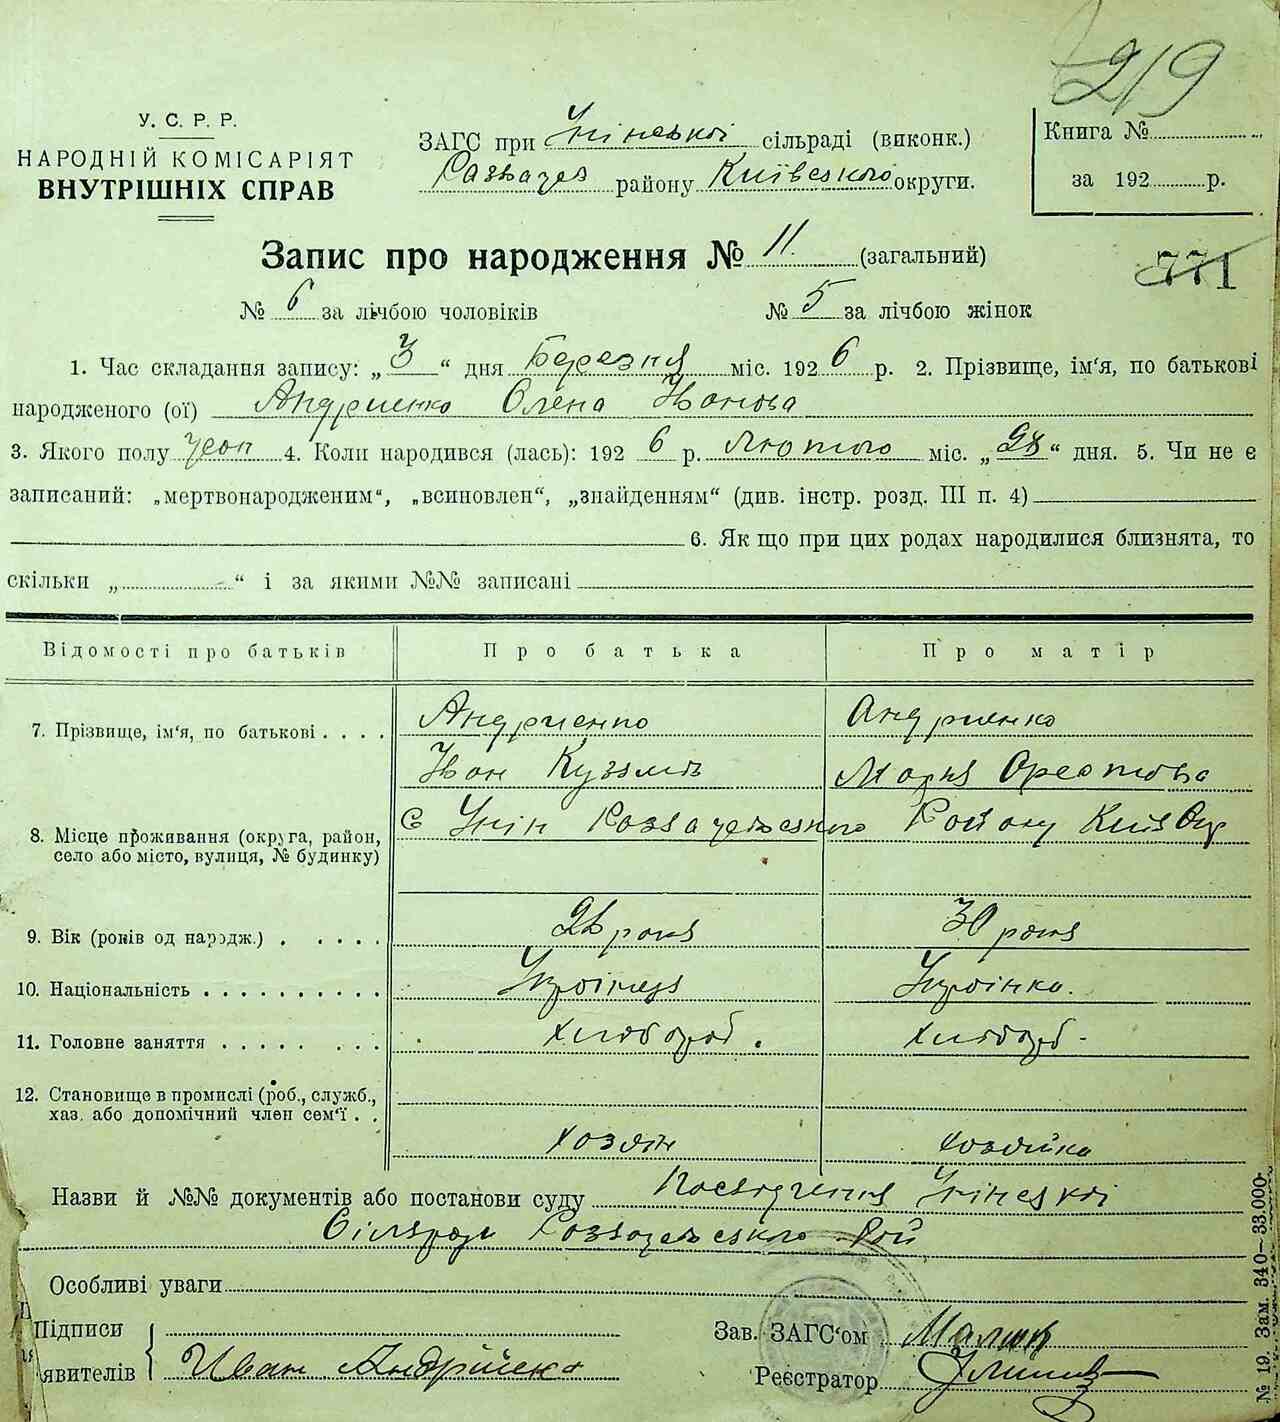 219
У. С. Р. Р.
НАРОДНІЙ КОМІСАРІЯТ
ВНУТРІШНІХ СПРАВ
ЗАГС при Унінській сільраді (виконк.)
Розважев району Київського округи.
Книга №
за 192 р.
Запис про народження № 11. (загальний)
771
№ 6 за лічбою чоловіків № 5 за лічбою жінок
1. Час складання запису: „3“ дня Березня міс. 1926 р. 2. Прізвище, ім‘я, по батькові
народженого (ої) Андриенко Олена Іванова
3. Якого полу жон 4. Коли народився (лась): 1926 р. Лютого міс. „28“ дня. 5. Чи не є
записаний: „мертвонародженим“, „всиновлен“, „знайденням“ (див. інстр. розд. III п. 4)
6. Як що при цих родах народилися близнята, то
скільки „ “ і за якими №№ записані
Відомості про батьків Про батька Про матір
7. Прізвище, ім‘я, по батькові . . . . Андриенко Андриенко
Іван Кузьмів Марія Орестова
8. Місце проживання (округа, район, С Унін Розважевського Району Київ Окр
село або місто, вулиця, № будинку)
9. Вік (років од народж.) . . . . . 28 років 30 років
10. Національність . . . . . . . . . . Украінець Украінка.
11. Головне заняття . . . . . . . . Хлібороб. Хлібороб
12. Становище в промислі (роб., служб.,
хаз. або допомічний член сем‘ї . .
хозяін хозяйка
Назви й №№ документів або постанови суду Посвідчення Унінської
Сільради Розважевського Рай
Особливі уваги
Підписи
явителів Иван Андрійенко
Зав. ЗАГС‘ом
Реєстратор
№ 19. Зам. 340—33.000